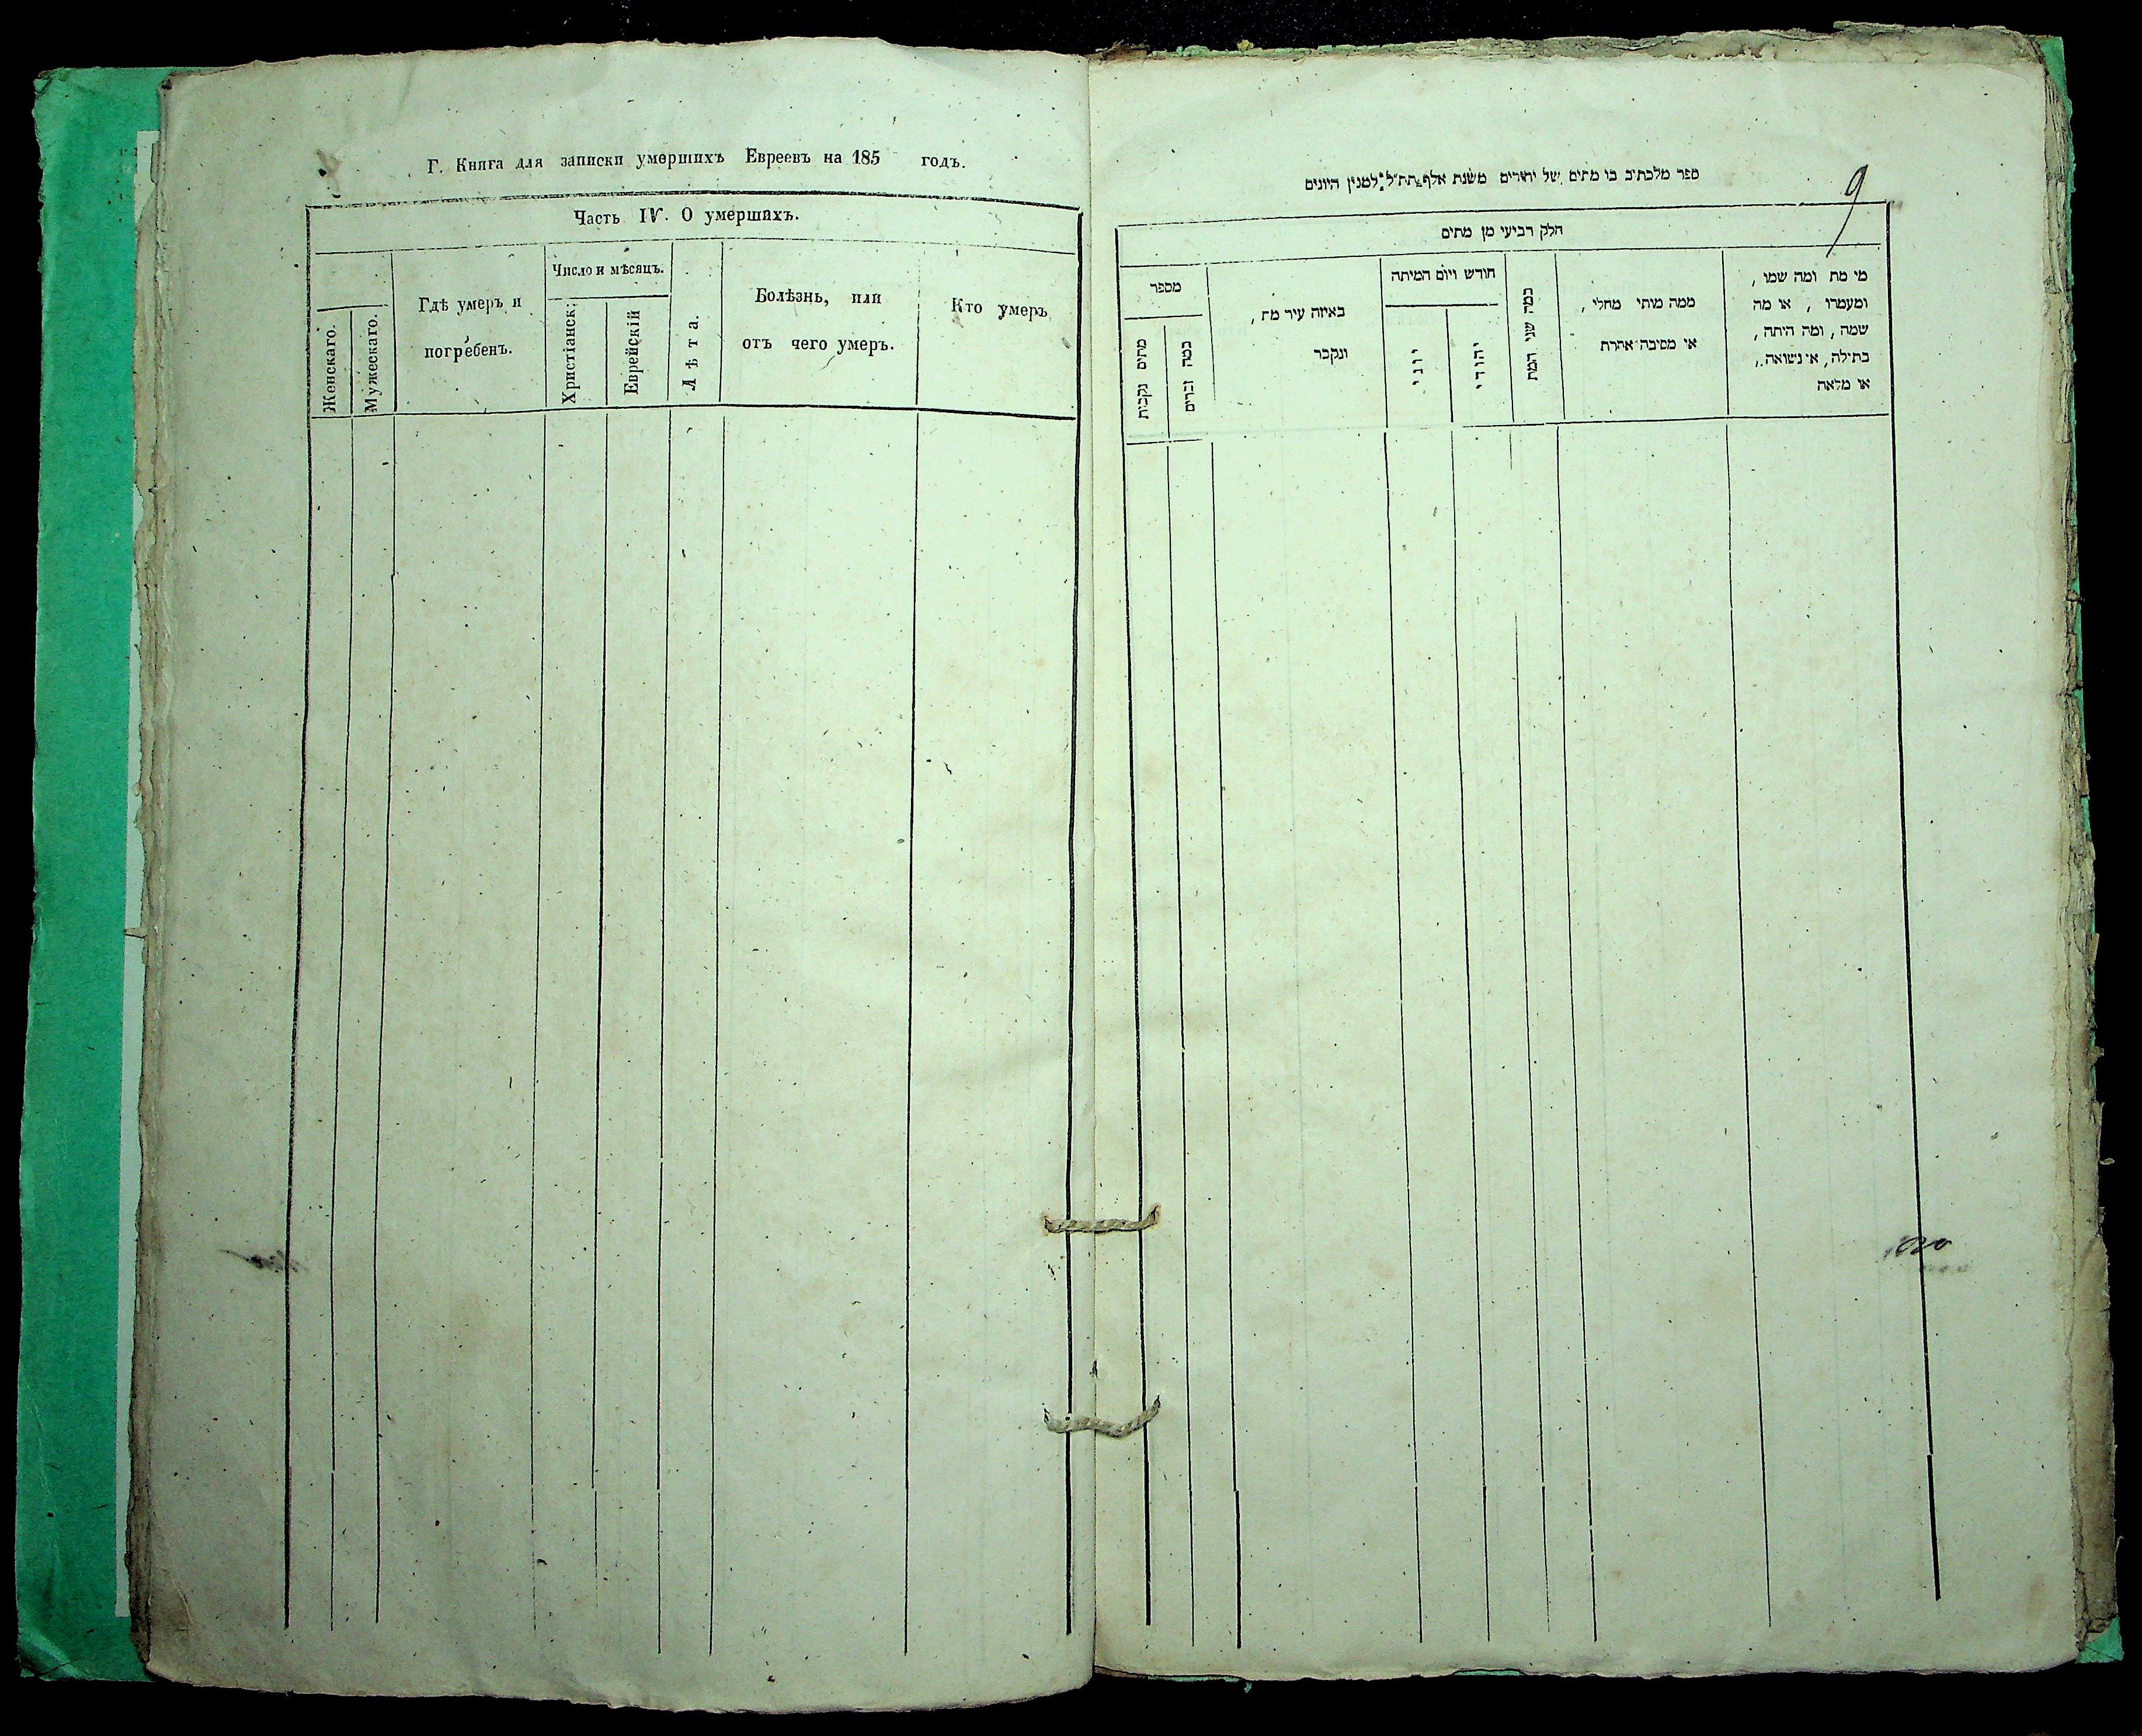 Г. Книга для записки умершихъ Евреевъ на 185 годъ.
Часть IV. О умершихъ.
Женскаго.
Мужескаго.
Гдѣ умеръ и
погребенъ.
Число и мѣсяцъ.
Христіанск:
Еврейскій
Лѣта.
Болѣзнь, или
отъ чего умеръ.
Кто умеръ
9
ספר מלכתיב בו מתים של יהודים משנת אלף למנין היונים
חלק רביעי מן מתים
מי מת ומה שמו,
ומעמדו, או מה
שמה, ומה היתה,
בתילה, אי נשואה,
או מלאה
ממה מותי מחלי,
אי מסיבה אחרת
כמה שני המת
חודש ויום המיתה
יהודי
יוני
באיזה עיר מת,
ונקבר
מספר
כמה זכרים
מתים נקבות